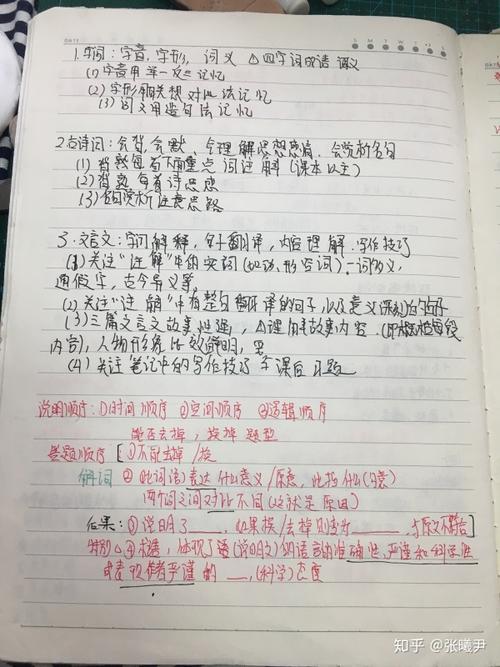 1.字词：字音，字形，词义 △四字词成语 词义
(1)字音用举一反三记忆
(2)字形用联想对比法记忆
(3)词义用造句法记忆
2.古诗词：会背，会默，会理解思想感情，会赏析名句
(1)背熟每首下面重点词注解（课本以主）
(2)背熟每首诗思想
(3)名句赏析注意思路
3.文言文：字词解释，句子翻译，内容理解，写作技巧
(1)关注“注解”中的实词（如动、形容词）一词多义，
通假字，古今异义等。
(2)关注“注解”中有整句翻译的句子，以及意义深刻的句子
(3)三篇文言文故事性强，△理解故事内容
内容），人物形象比较鲜明，
(4)关注笔记中的写作技巧和课后习题
说明顺序：①时间顺序 ②空间顺序 ③逻辑顺序
能否去掉，换掉题型
答题顺序 ①不能去掉/换
解词 ②此词语表达什么意义/原意，此指什么
两个词之间对比不同（这就是原因）
后果：③说明了____，如果换/去掉则变为____，与原文不符合
④ 体现了语（说明文）的语言的准确性、严谨和科学性
或表现作者严谨的____，（科学）态度
知乎 @张曦尹